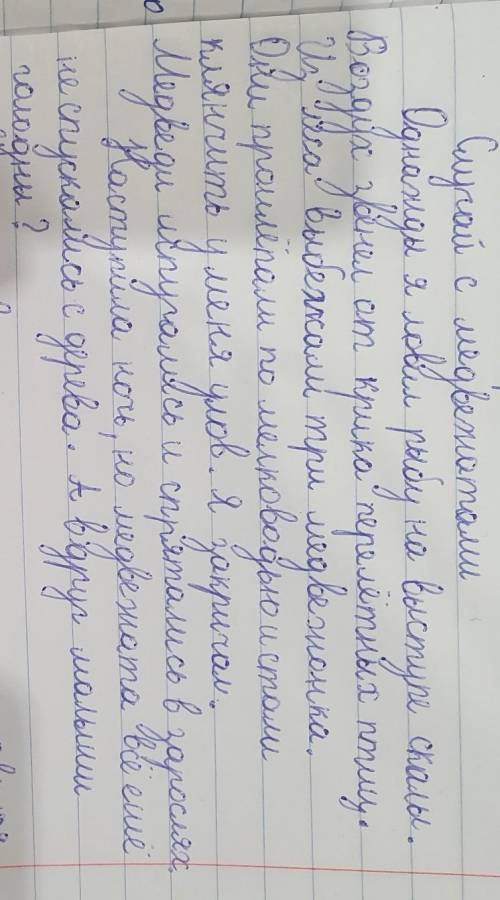 Случай с медвежатами
Однажды я ловил рыбу на выступе скалы.
Воздух звенел от крика перелётных птиц.
Из леса выбежали три медвежонка.
Они прошлёпали по мелководью и стали
клянчить у меня улов. Я закричал.
Медведи испугались и спрятались в зарослях.
Наступила ночь, но медвежата всё ещё
не спускались с дерева. А вдруг малыши
голодны?